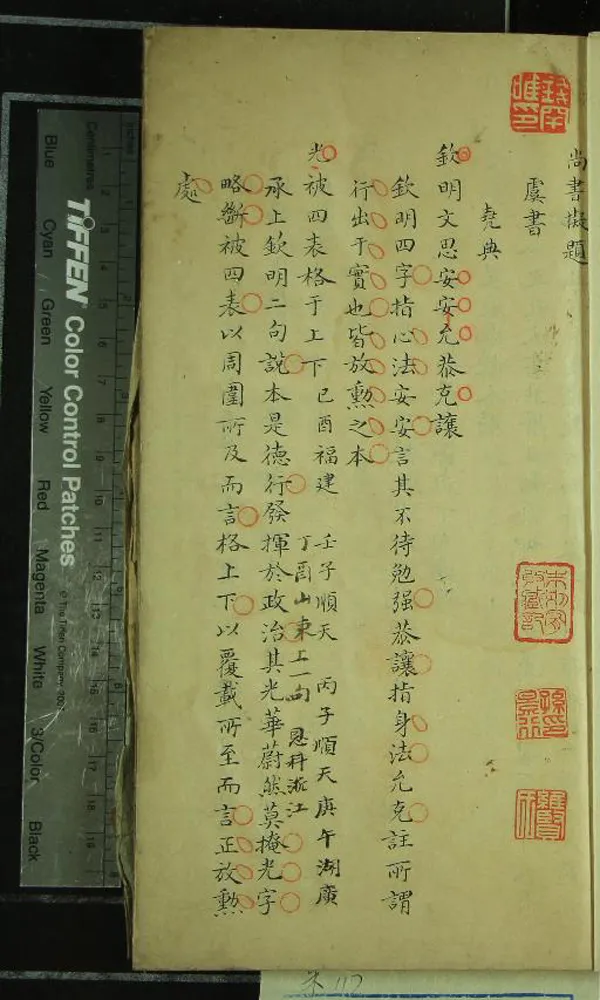 尚書擬題
虞書
堯典
欽明文思安安允恭克讓
欽明四字指心法安安言其不待勉强恭讓指身法允克註所謂
行出于實也皆放勲之本
光被四表格于上下 己酉福建 壬子順天 丙子順天 庚午湖廣
丁酉山東上一句 恩科浙江
承上欽明二句說本是德行發揮於政治其光華蔚然莫掩光字
略斷被四表以周圍所及而言格上下以覆載所至而言正放勲
處
TIFFEN Color Control Patches
© The Tiffen Company, 200
Centimetres
Inches
Blue
Cyan
Green
Yellow
Red
Magenta
White
3/Color
Black
112